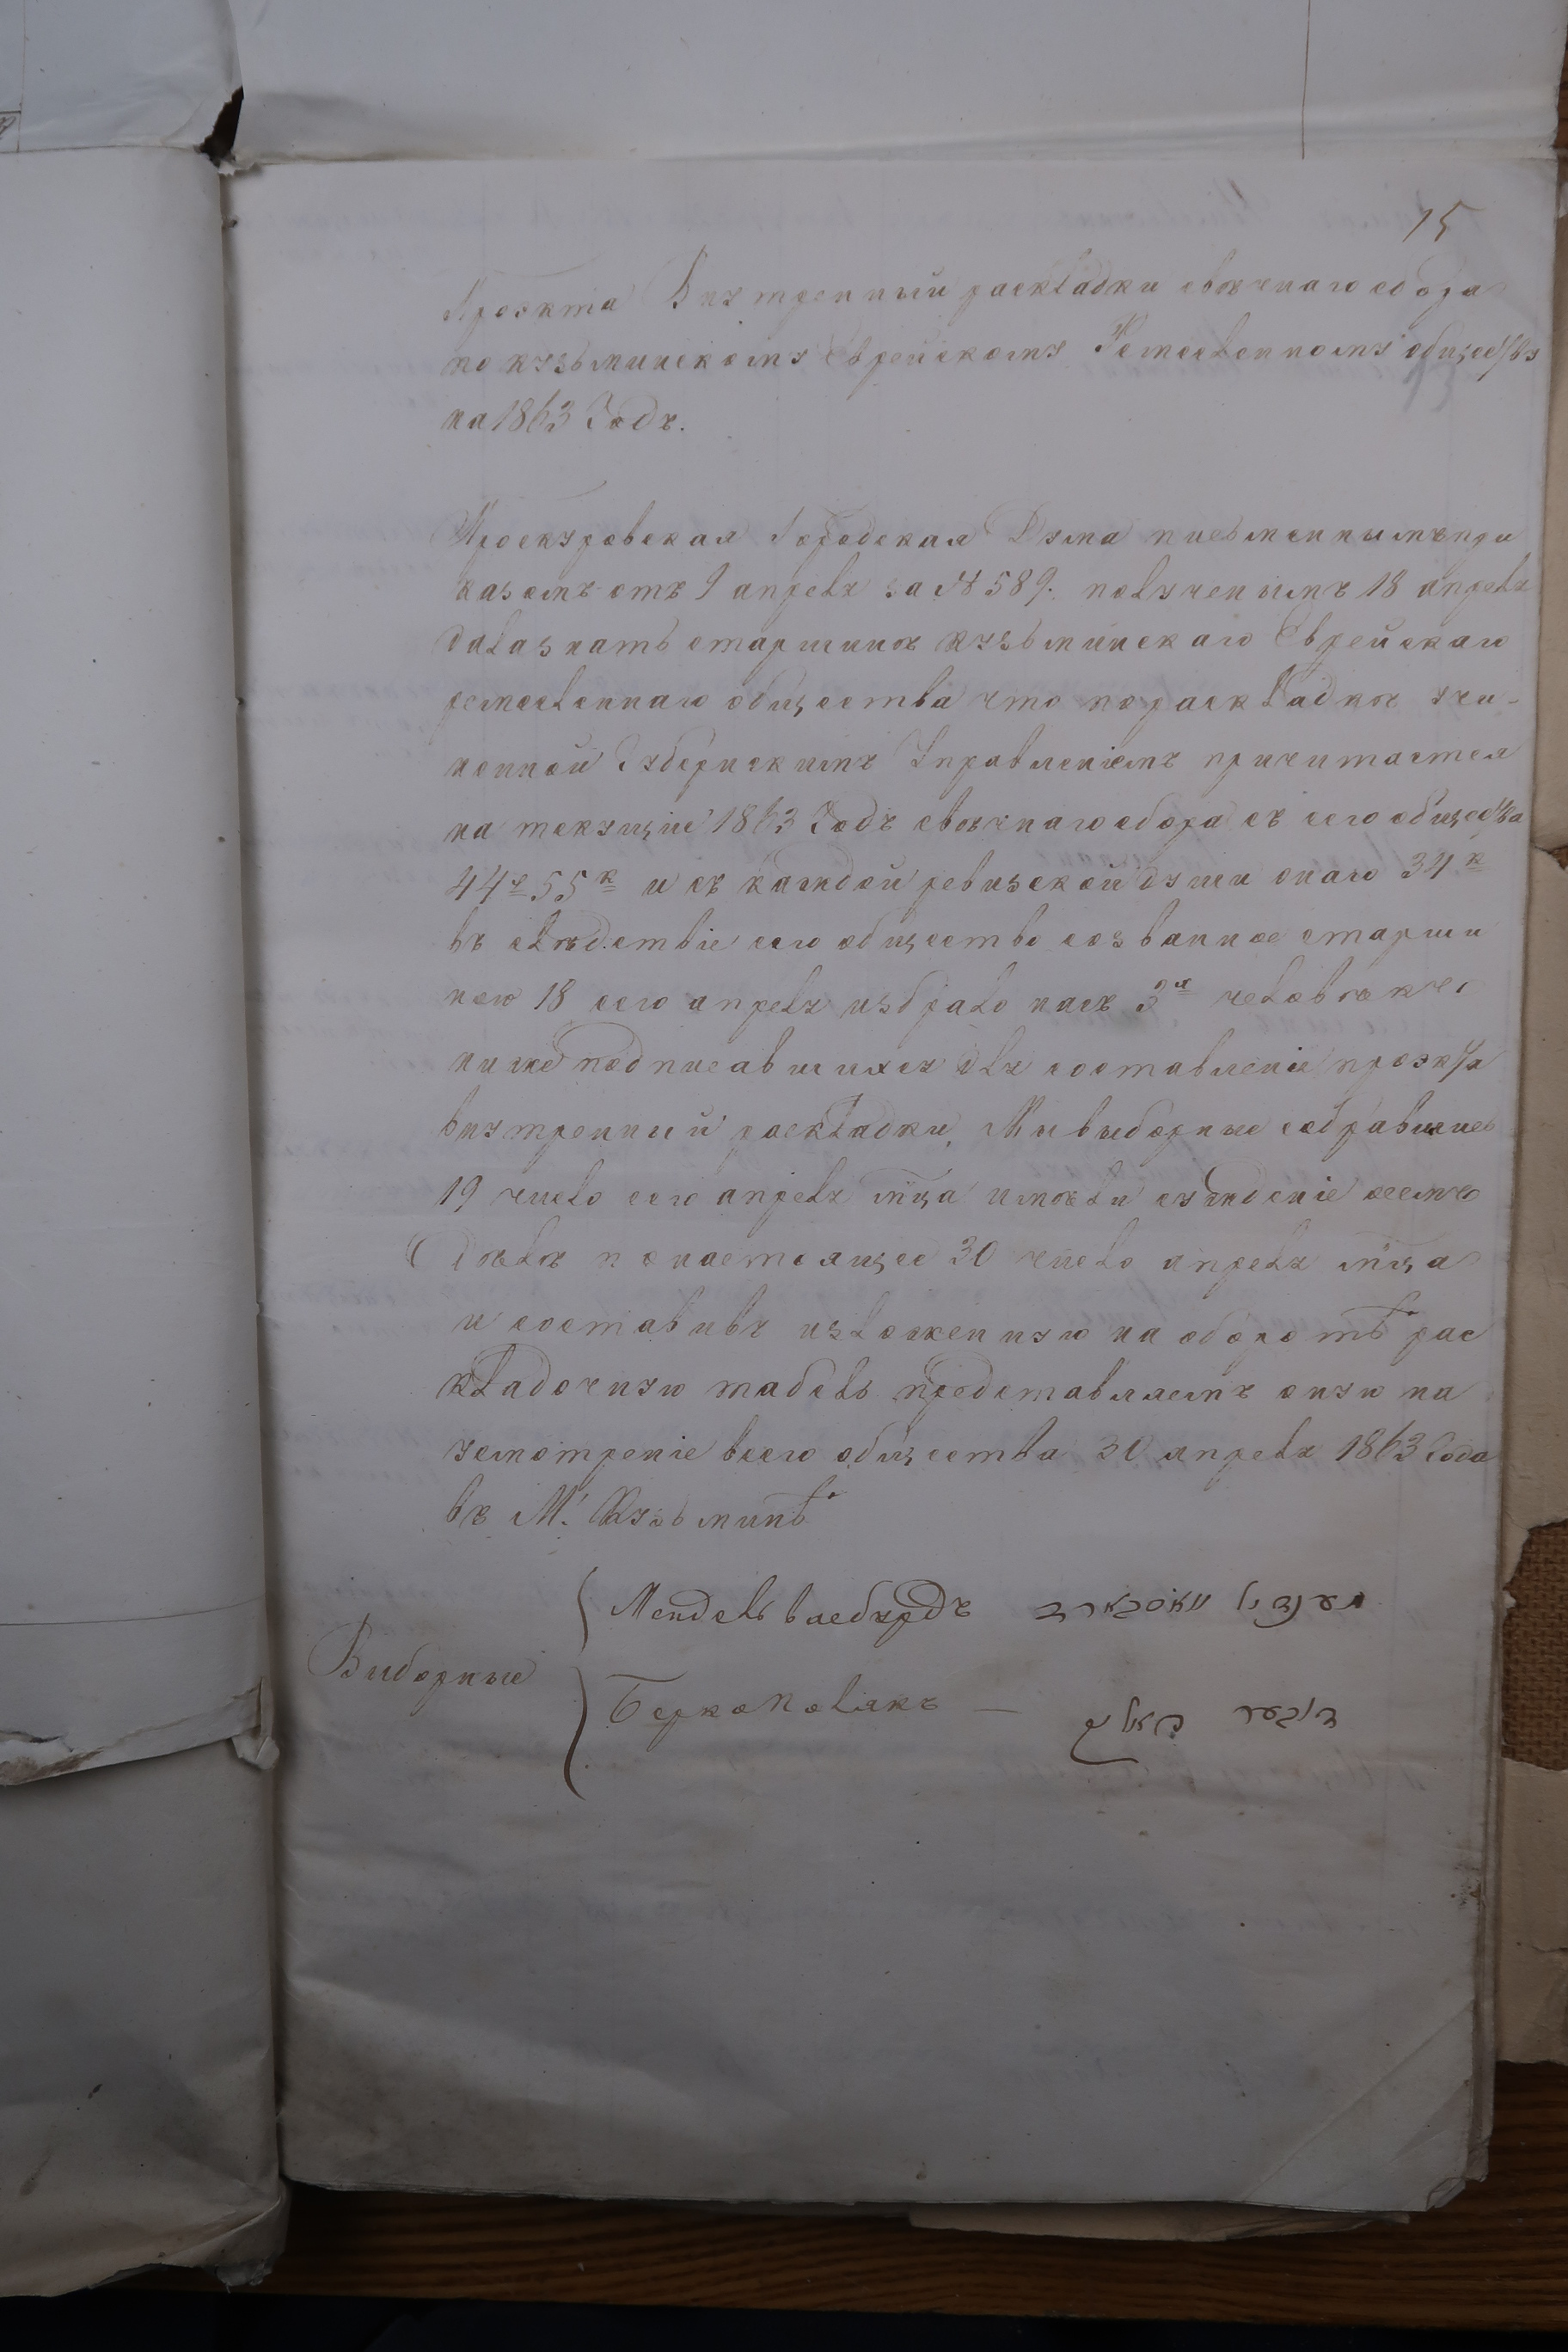 15
Проэкта Внутренный раскладки свѣчнаго сбора
по кузьминскому Еврейскому Ремесленному обществу
на 1863 Годъ.
Проскуровская Городская Дума письменнымъ при
казомъ отъ 9 апреля за № 589. полученымъ 18 апреля
дала знать старшинѣ кузьминскаго Еврейскаго
ремесленнаго общества что по раскладкѣ учи-
ненной Губернскимъ Управленіемъ причитается
на текущие 1863 Годъ свѣчнаго сбора съ сего общества
44 р 55 к и съ каждой ревизской души онаго 34 к
въ слѣдствіе сего общество созванное старши
ною 18 сего апреля избрало насъ 3х человѣкъ
ниже подписавшихся для составленіе проэкта
внутренный раскладки, Мы выборные собравшись
19 число сего апреля мца имѣли суждение
дѣлѣ по настоящее 30 число апреля мца
и составивъ изложенную на оборотѣ рас
кладочную табель представляемъ оную на
усмотреніе всего общества 30 апреля 1863 Года
въ М. Кузьминѣ
Выборные
Мендель васбурдъ
Берко Полякъ —